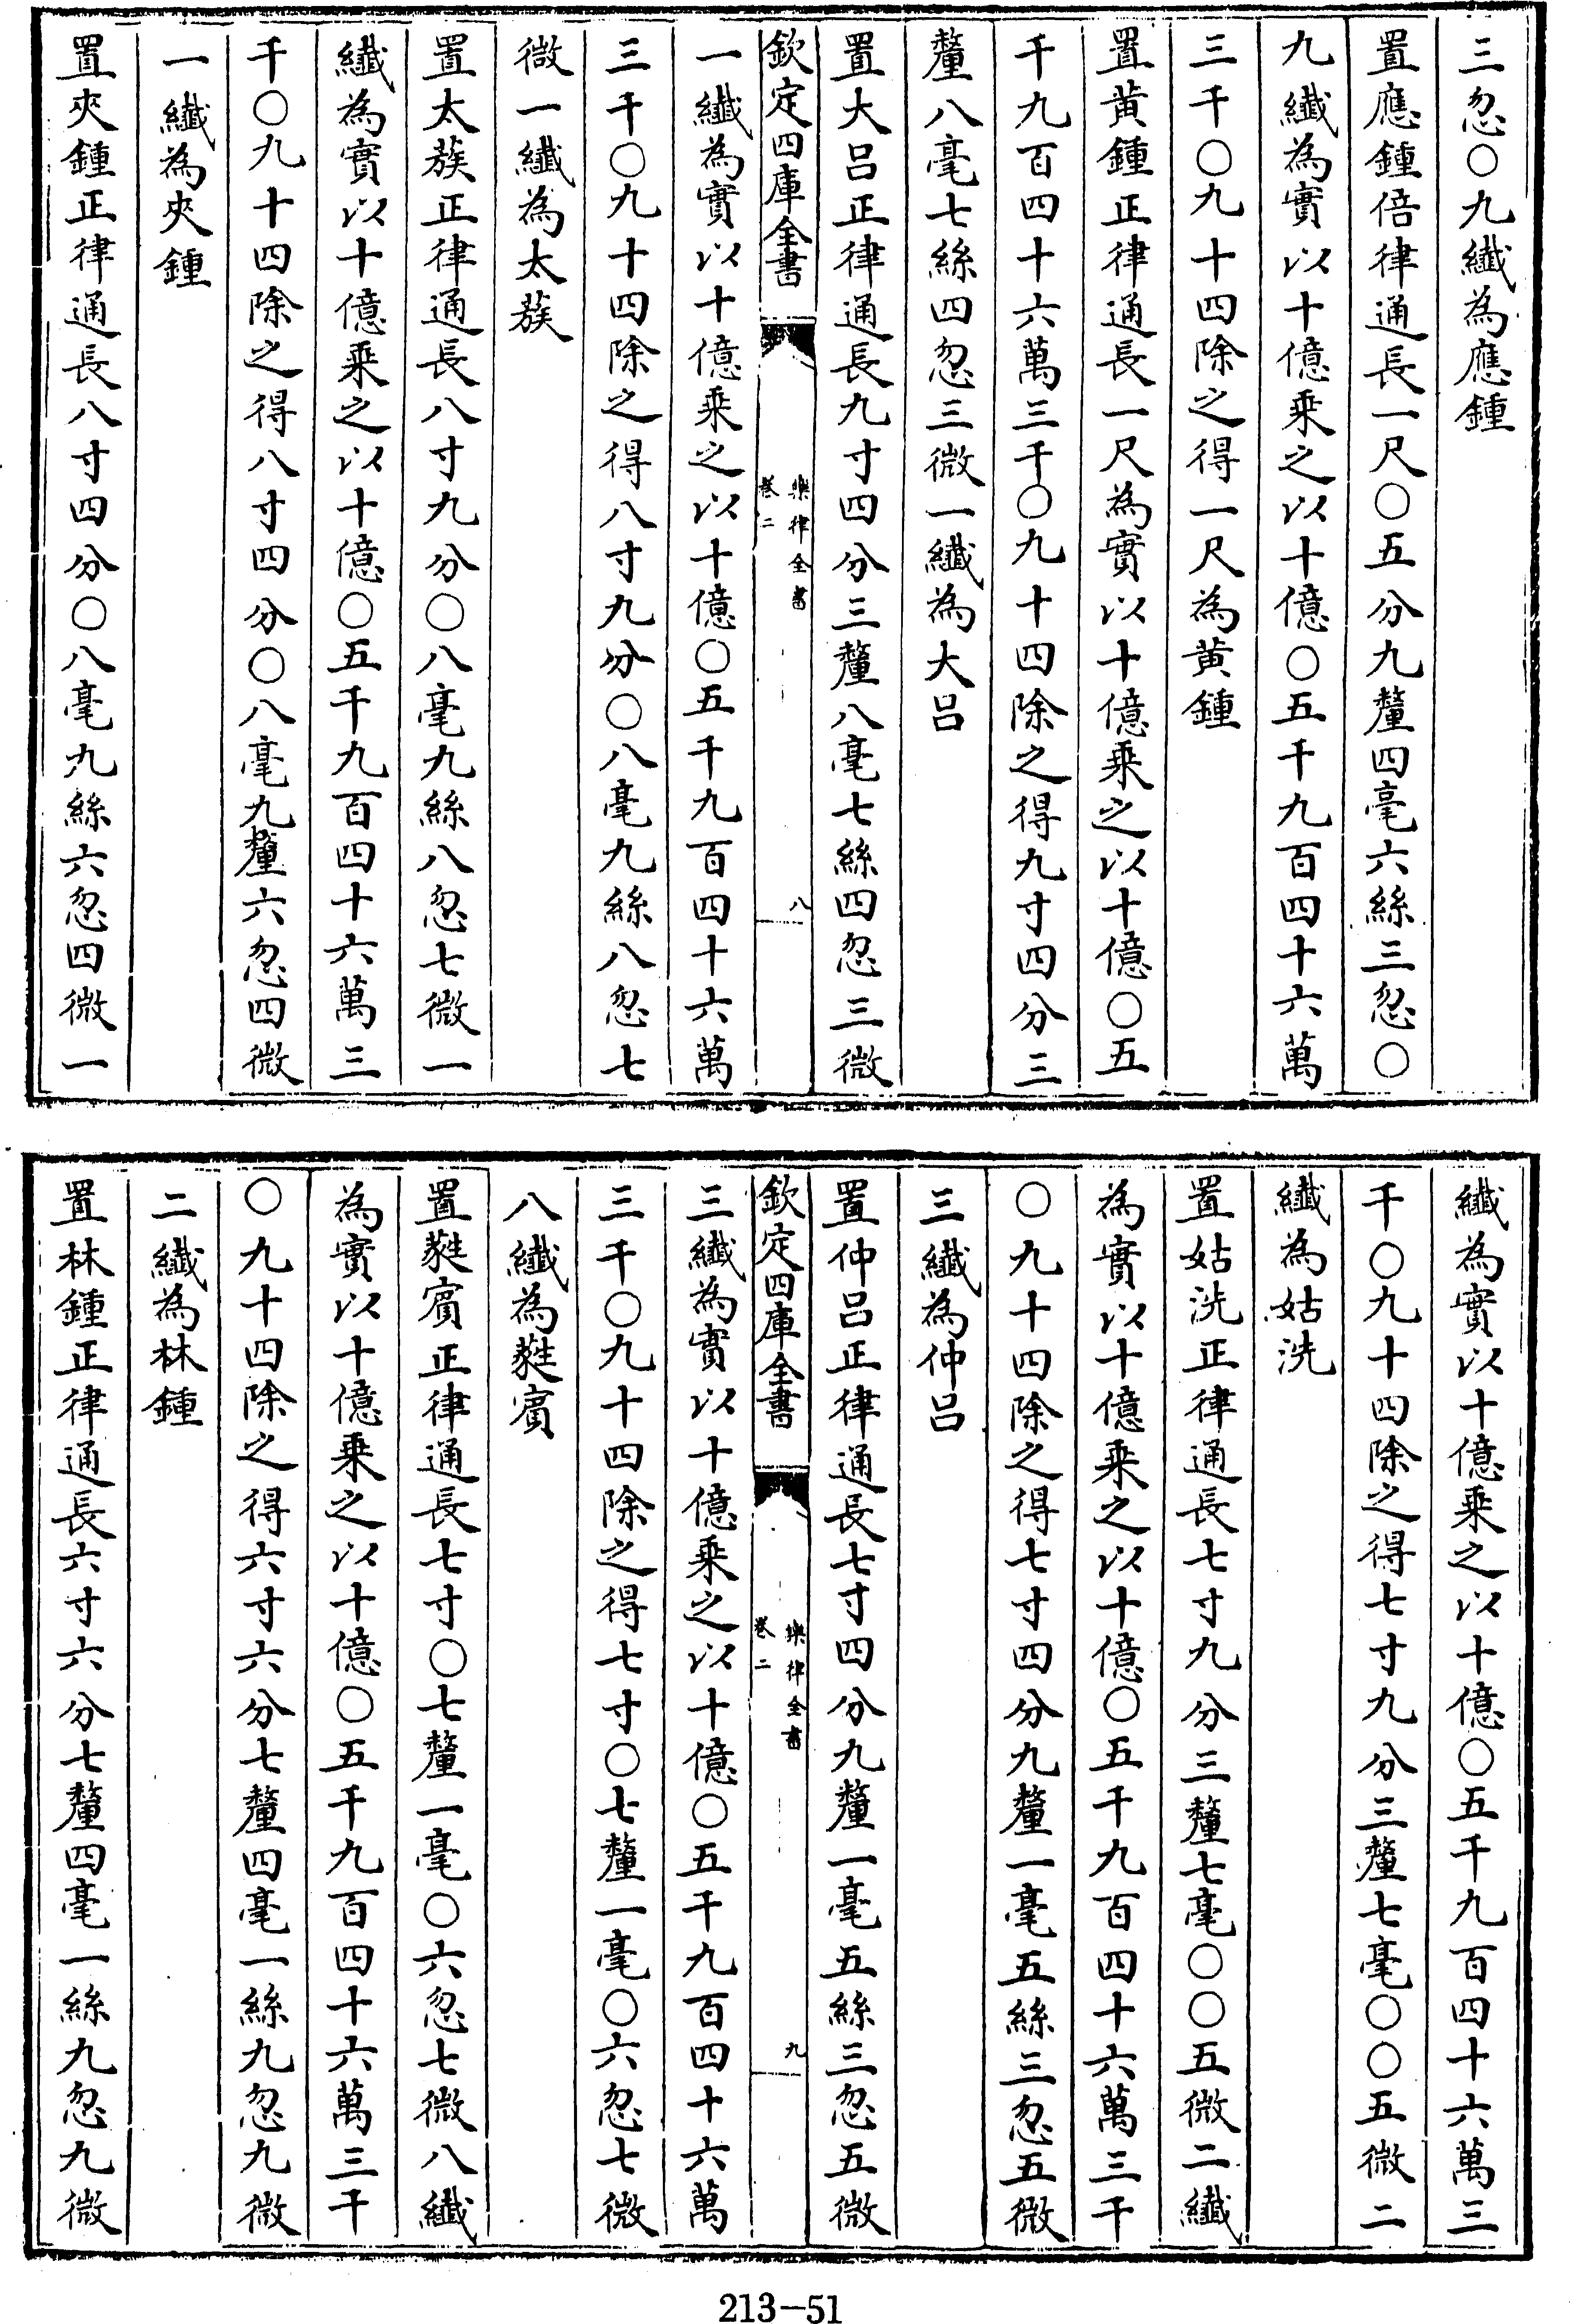 三忽〇九纖為應鍾
置應鍾倍律通長一尺〇五分九釐四毫六絲三忽〇
九纖為實以十億乘之以十億〇五千九百四十六萬
三千〇九十四除之得一尺為黄鍾
置黄鍾正律通長一尺為實以十億乘之以十億〇五
千九百四十六萬三千〇九十四除之得九寸四分三
釐八毫七絲四忽三微一纖為大呂
置大呂正律通長九寸四分三釐八毫七絲四忽三微
欽定四庫全書
樂律全書
卷二
八
一纖為實以十億乘之以十億〇五千九百四十六萬
三千〇九十四除之得八寸九分〇八毫九絲八忽七
微一纖為太蔟
置太蔟正律通長八寸九分〇八毫九絲八忽七微一
纖為實以十億乘之以十億〇五千九百四十六萬三
千〇九十四除之得八寸四分〇八毫九釐六忽四微
一纖為夾鍾
置夾鍾正律通長八寸四分〇八毫九絲六忽四微一
纖為實以十億乘之以十億〇五千九百四十六萬三
千〇九十四除之得七寸九分三釐七毫〇〇五微二
纖為姑洗
置姑洗正律通長七寸九分三釐七毫〇〇五微二纖
為實以十億乘之以十億〇五千九百四十六萬三千
〇九十四除之得七寸四分九釐一毫五絲三忽五微
三纖為仲呂
置仲呂正律通長七寸四分九釐一毫五絲三忽五微
欽定四庫全書
樂律全書
卷二
九
三纖為實以十億乘之以十億〇五千九百四十六萬
三千〇九十四除之得七寸〇七釐一毫〇六忽七微
八纖為蕤賓
置蕤賓正律通長七寸〇七釐一毫〇六忽七微八纖
為實以十億乘之以十億〇五千九百四十六萬三千
〇九十四除之得六寸六分七釐四毫一絲九忽九微
二纖為林鍾
置林鍾正律通長六寸六分七釐四毫一絲九忽九微
213-51